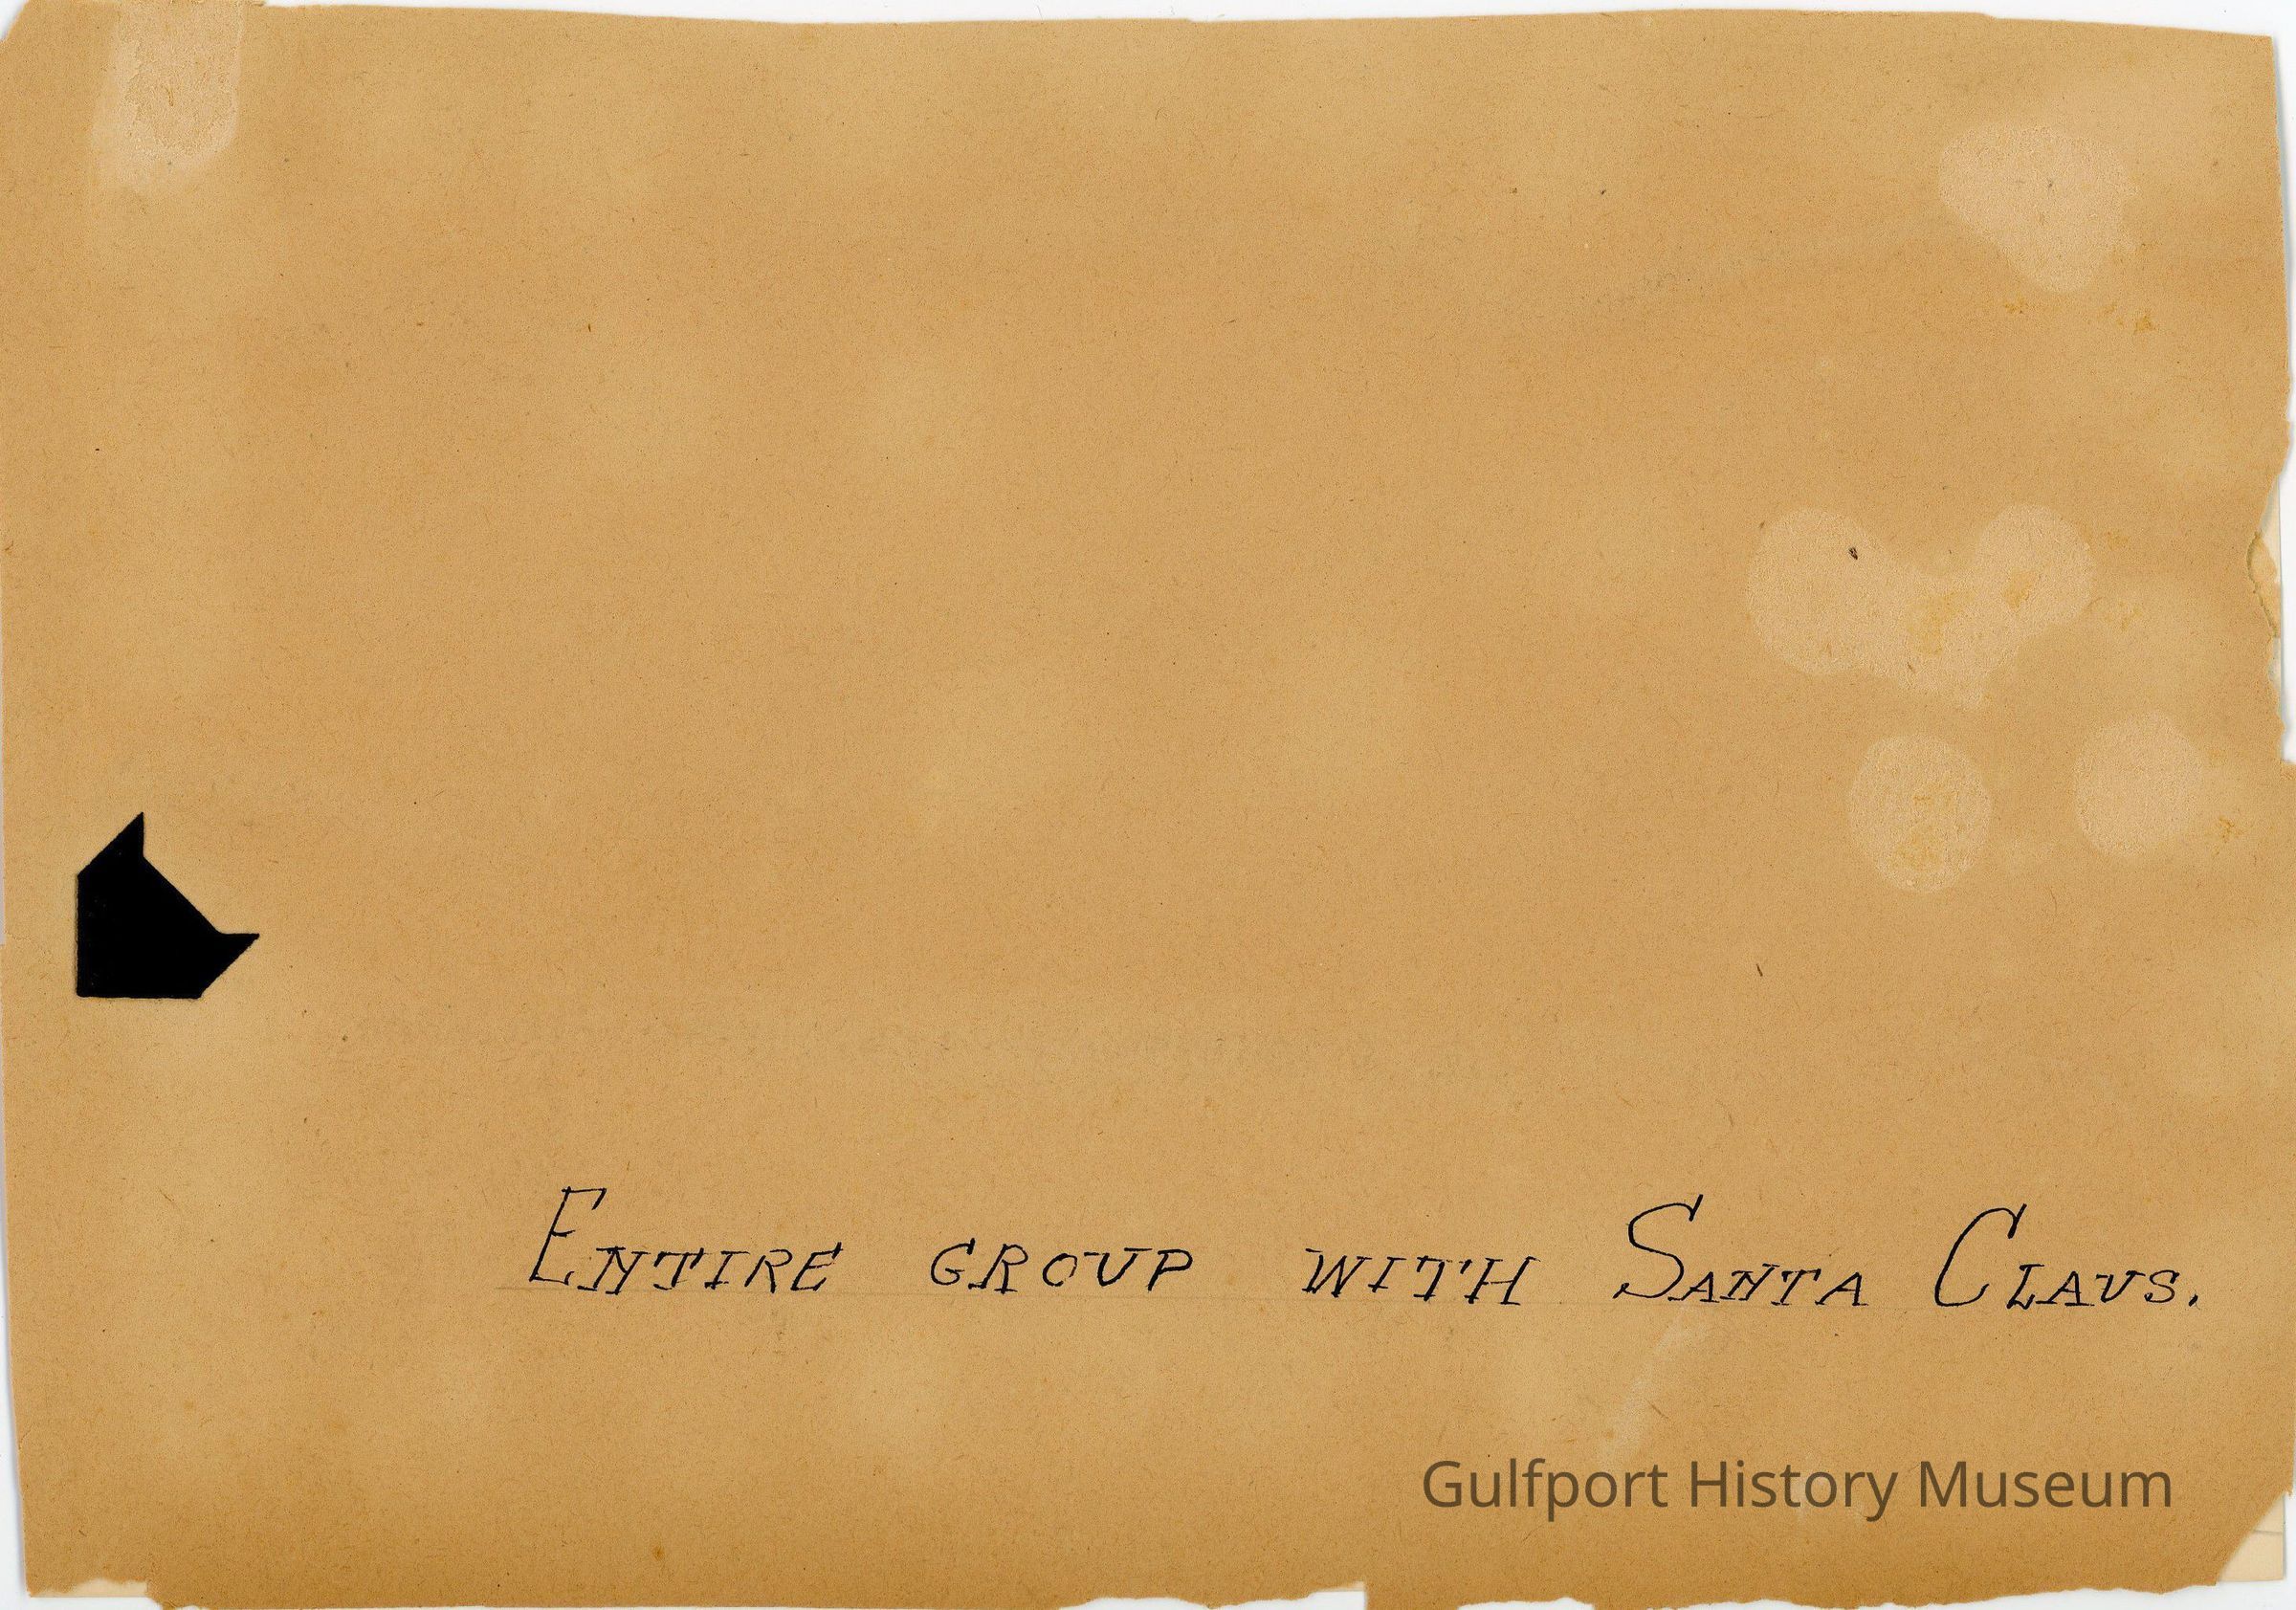 Entire group with Santa Claus.
Gulfport History Museum